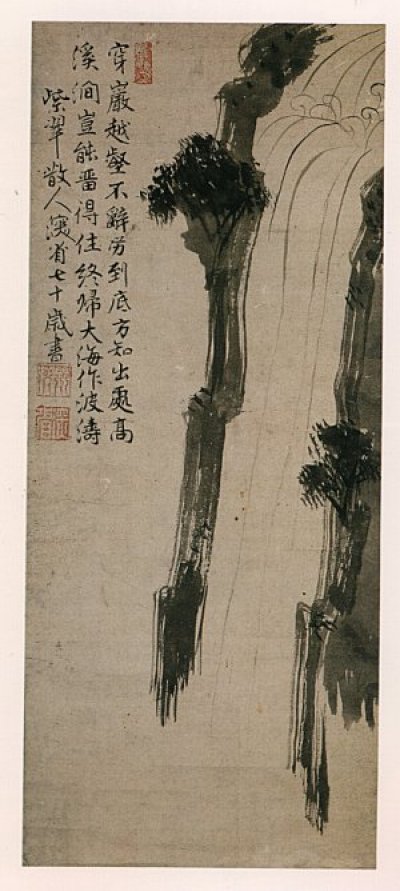 穿巖越壑不辭労到底方知出處高
溪澗豈能畱得住終帰大海作波濤
紫翠散人省七十歲書